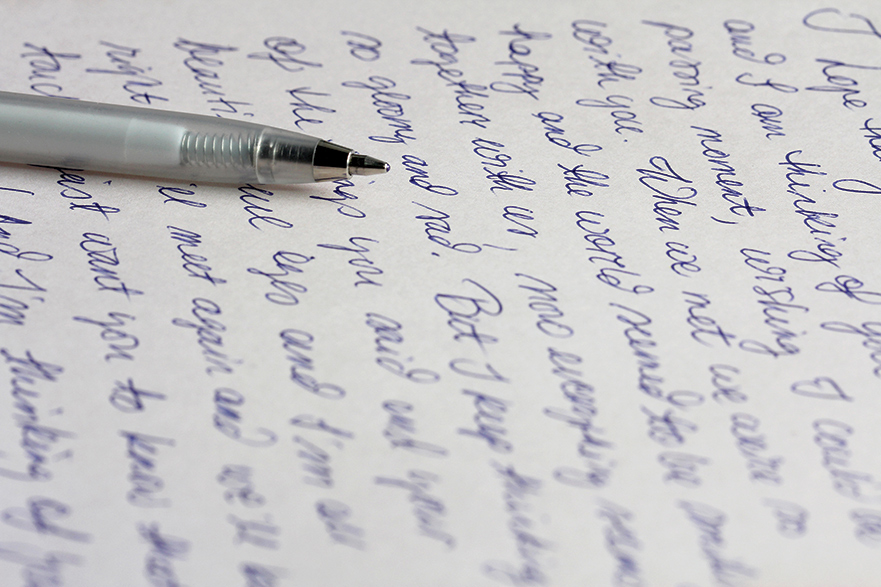 I hope
and I am thinking of you
passing moment, wishing I could be
with you. When we met we were so
happy and the world to be
together with us, now everything seems
so gloomy and sad. But I keep thinking
of the you said and your
beauti ful eyes and I'm all
right meet again and we'll
want you to know that
And I'm thinking of you